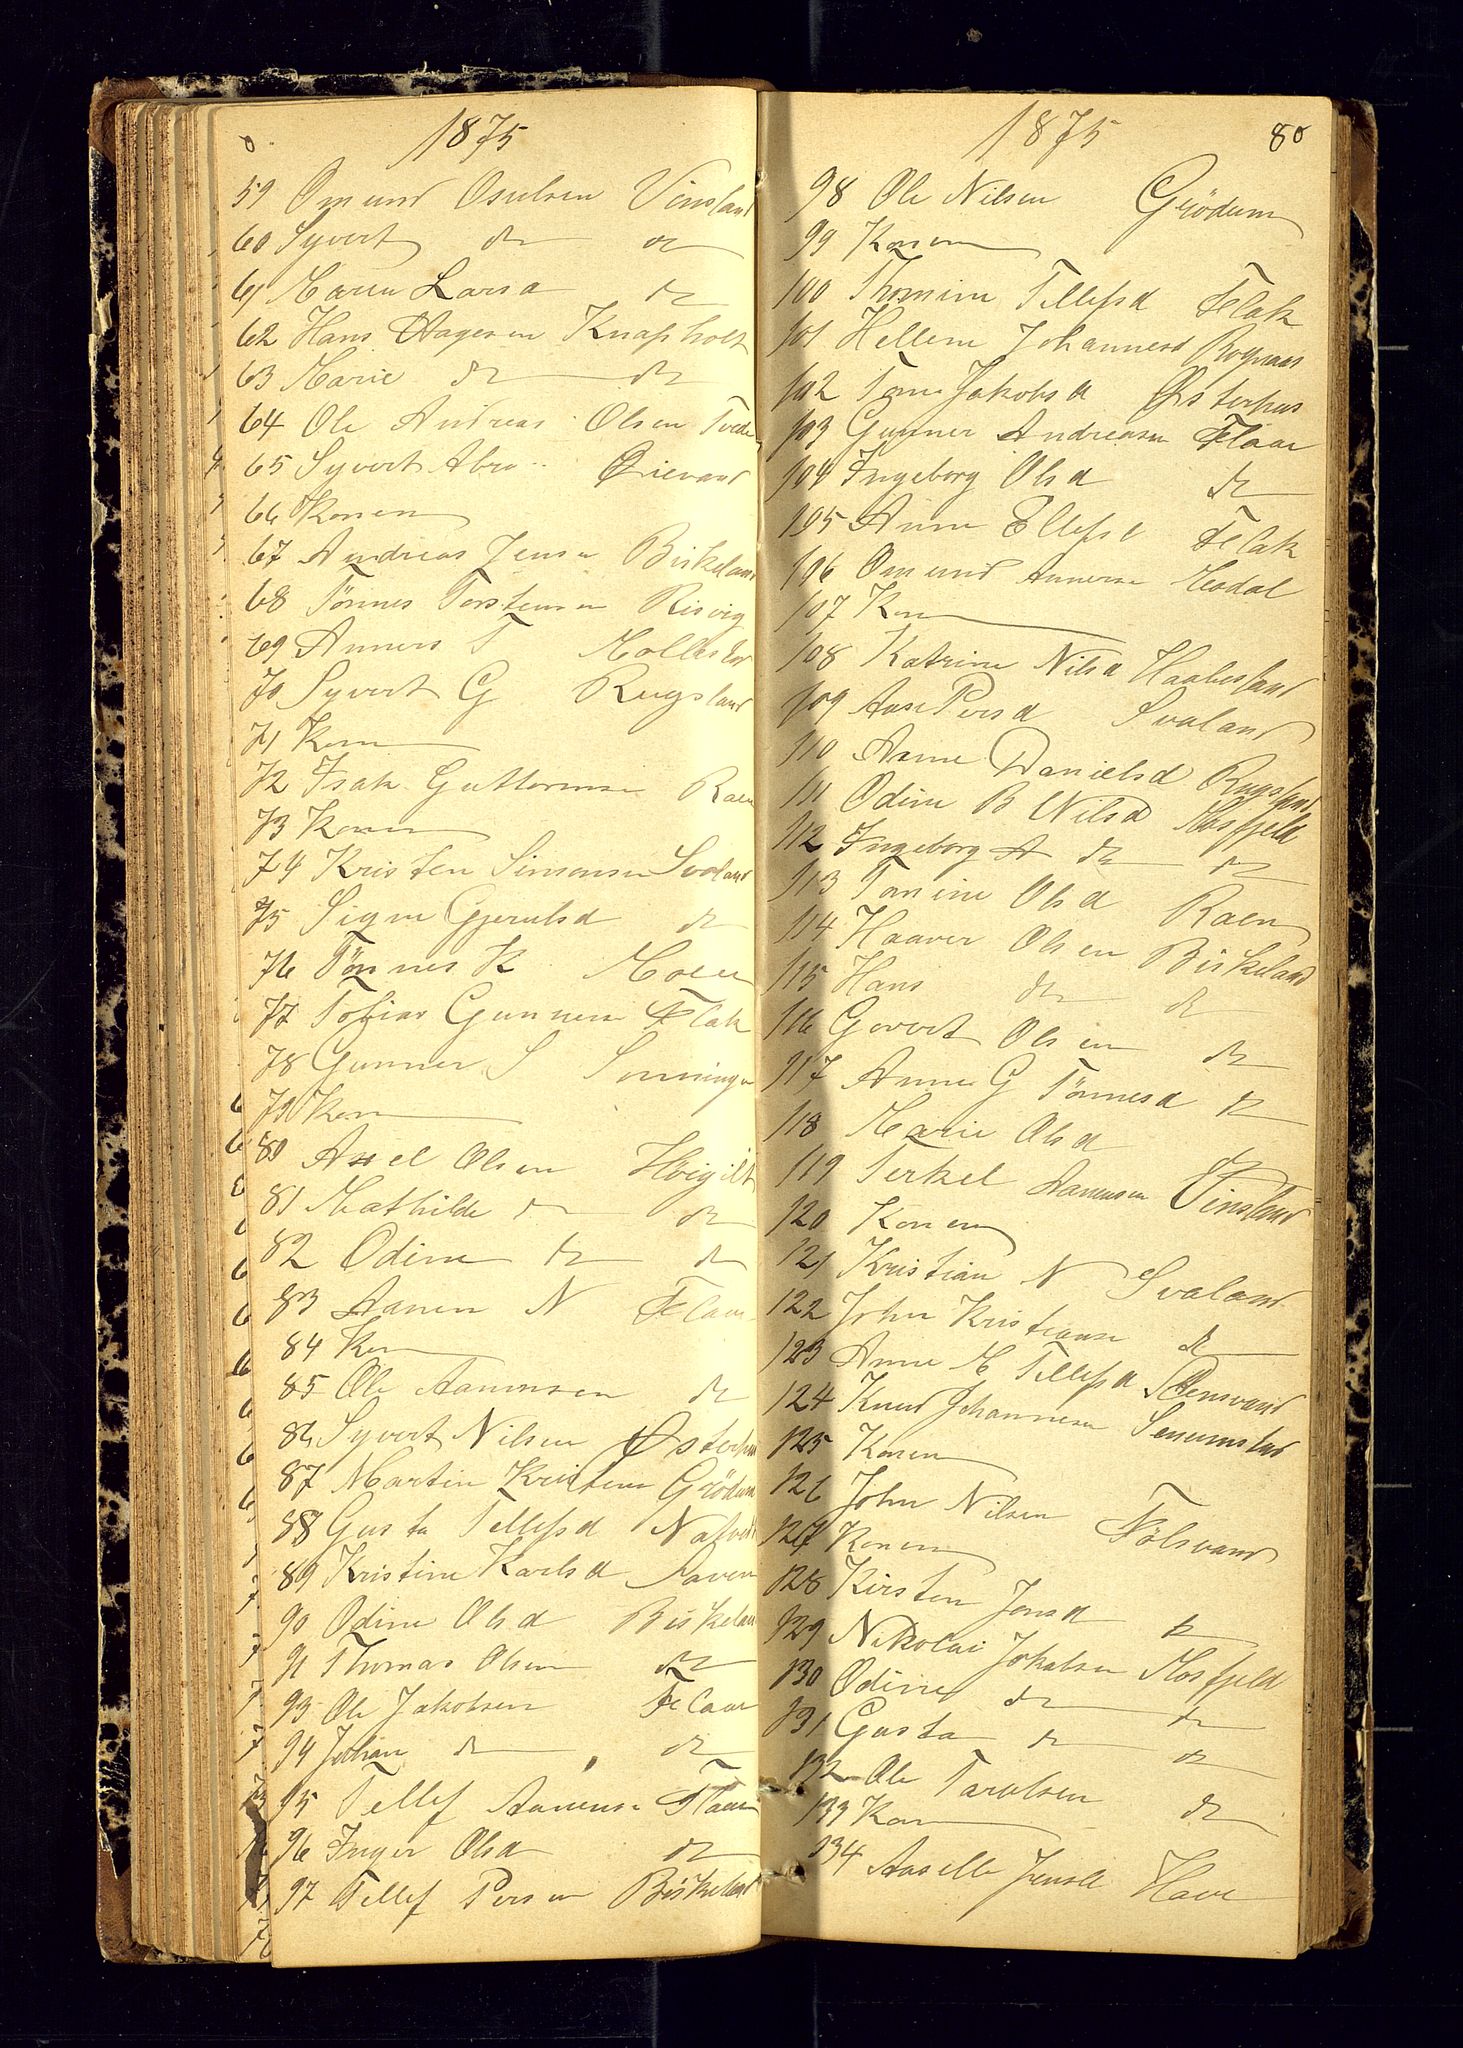 1875
59 Omund Osulsen Vinsland
60 Syvert do do
61 Maren Larsd do
62 Hans Aagesen Knapholt
63 Marie do do
64 Ole Andreas Olsen Tvede
65 Syvert Abra Grievand
66 Konen
67 Andreas Jensen Birkeland
68 Tönnes Torstensen Risvig
69 Anners T Mollestad
70 Syvert G Rugsland
71 Kon
72 Isak Guttormsen Raen
73 Konen
74 Kristen Simonsen Svaland
75 Signe Gjerulsd do
76 Tönnes K Moen
77 Tobias Gunnersen Flak
78 Gunner S Senningen
79 Kon
80 Axel Olsen Höigilt
81 Mathilde do do
82 Odine do do
83 Aanen N Flaae
84 Kon
85 Ole Aanensen do
86 Syvert Nilsen Østerhus
87 Martin Kristens Grödum
88 Gusta Tellefsd Natvedt
89 Kristine Karlsd
90 Odine Olsd Birkeland
91 Thomas Olsen do
93 Ole Jakobsen Flaae
94 Johan do do
95 Tellef Aanensen Flaae
96 Inger Olsd do
97 Tellef Persen Birkeland
1875 80
98 Ole Nilsen Grödum
99 Konen
100 Thomine Tellefsd Flak
101 Hellene Johannesd Rognaas
102 Tone Jakobsd Østerhus
103 Gunner Andreasen Flaae
104 Ingeborg Olsd do
105 Anne Ellefsd Flak
106 Omund Annersen Modal
107 Kon
108 Katrine Nilsd Haabesland
109 Aase Persd Svaland
110 Anne Danielsd Rugsland
111 Odine B Nilsd Mosfjeld
112 Ingeborg A do do
113 Tomine Olsd Raen
114 Haaver Olsen Birkeland
115 Hans do do
116 Govert Olsen do
117 Anne G Tönnesd do
118 Marie Olsd do
119 Terkel Aanensen Vinsland
120 Konen
121 Kristian N Svaland
122 John Kristiansen do
123 Anne M Tellefsd
124 Knud Johannesen Senumstad
125 Konen
126 John Nilsen Fölsvand
127 Konen
128 Kirsten Jonsd do
129 Nikolai Jokabsen Mosfjeld
130 Odine do do
131 Gusta do do
132 Ole Taralsen do
133 Kon
134 Aaselle Jensd Have